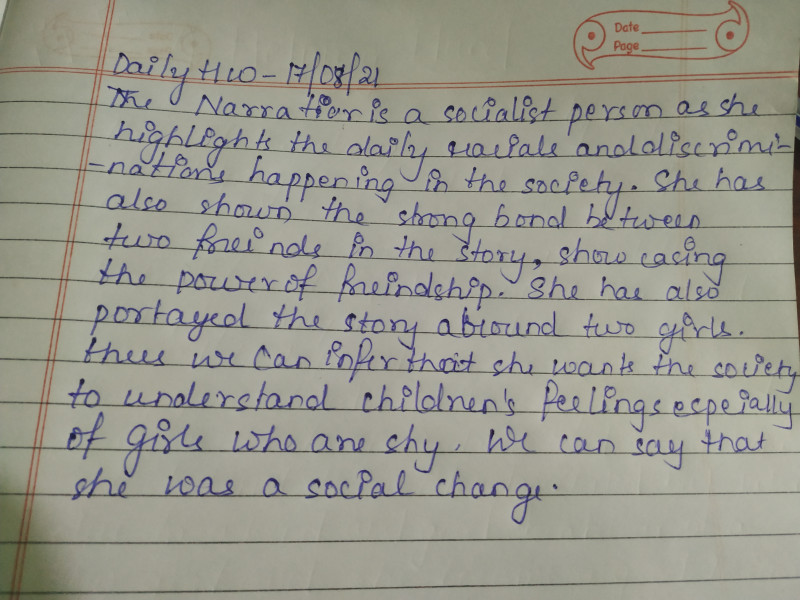 Date
Page
Daily HW - 17/08/21
The Narratior is a socialist person as she
highlights the daily racials and discrimi-
-nations happening in the society. She has
also shown the strong bond between
two freinds in the story, show casing
the power of freindship. She has also
portayed the story around two girls.
thus we can infer that she wants the society
to understand children's feelings especially
of girls who are shy. We can say that
she was a social change.